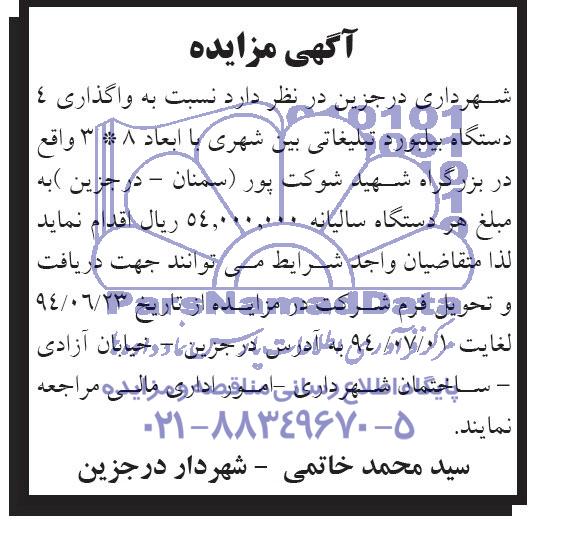 آگهی مزایده
شهرداری درجزین در نظر دارد نسبت به واگذاری ٤
دستگاه بیلبورد تبلیغاتی بین شهری با ابعاد ۸ * ۳ واقع
در بزرگراه شهید شوکت پور (سمنان – درجزین )به
مبلغ هر دستگاه سالیانه ٥٤,٠٠٠,٠٠٠ ریال اقدام نماید
لذا متقاضیان واجد شرایط می توانند جهت دریافت
و تحویل فرم شرکت در مزایده از تاریخ ٩٤/٠٦/٢٣
لغایت ٩٤/٠٧/٠١ به آدرس درجزین – خیابان آزادی
– ساختمان شهرداری –امور اداری مالی مراجعه
نمایند.
سید محمد خاتمی – شهردار درجزین
ParsNamadData
پایگاه اطلاع رسانی مناقصه و مزایده
۰۲۱–۸۸۳٤۹٦۷۰–۵